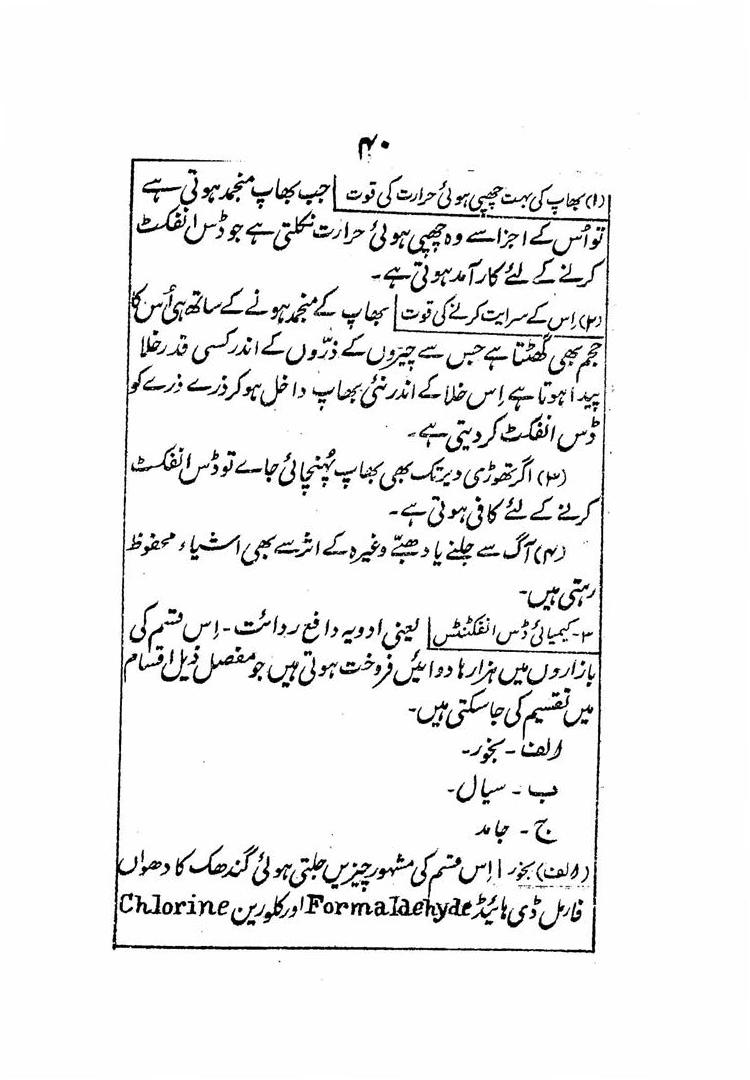 ۴۰
(۱) بھاپ کی بہت چھپی ہوئی حرارت کی قوت جب بھاپ منجمد ہوتی ہے
تو اُس کے اجزا سے وہ چھپی ہوئی حرارت نکلتی ہے جو ڈس انفکٹ
کرنے کے لئے کارآمد ہوتی ہے۔
(۲) اِس کے سرایت کرنے کی قوت بھاپ کے منجمد ہونے کے ساتھ ہی اُس کا
حجم بھی گھٹتا ہے جس سے چیزوں کے ذرّوں کے اندر کسی قدر خلا
پیدا ہوتا ہے اِس خلا کے اندر نئی بھاپ داخل ہوکر ذرے ذرے کو
ڈس انفکٹ کر دیتی ہے۔
(۳) اگر تھوڑی دیر تک بھی بھاپ پُہنچائی جاے تو ڈس انفکٹ
کرنے کے لئے کافی ہوتی ہے۔
(۴) آگ سے جلنے یا دھبّے وغیرہ کے اثر سے بھی اشیاء محفوظ
رہتی ہیں۔
۳۔ کیمیائی ڈس انفکٹنٹس یعنی ادویہ دافع ردائت۔ اِس قسم کی
بازاروں میں ہزارہا دوائیں فروخت ہوتی ہیں جو مفصل ذیل اقسام
میں تقسیم کی جاسکتی ہیں۔
الف۔ بخور۔
ب۔ سیال۔
ج۔ جامد
(الف) بخور اِس قسم کی مشہور چیزیں جلتی ہوئی گندھک کا دھواں
فارمل ڈی ہائیڈ Formaldehyde اور کلورین Chlorine